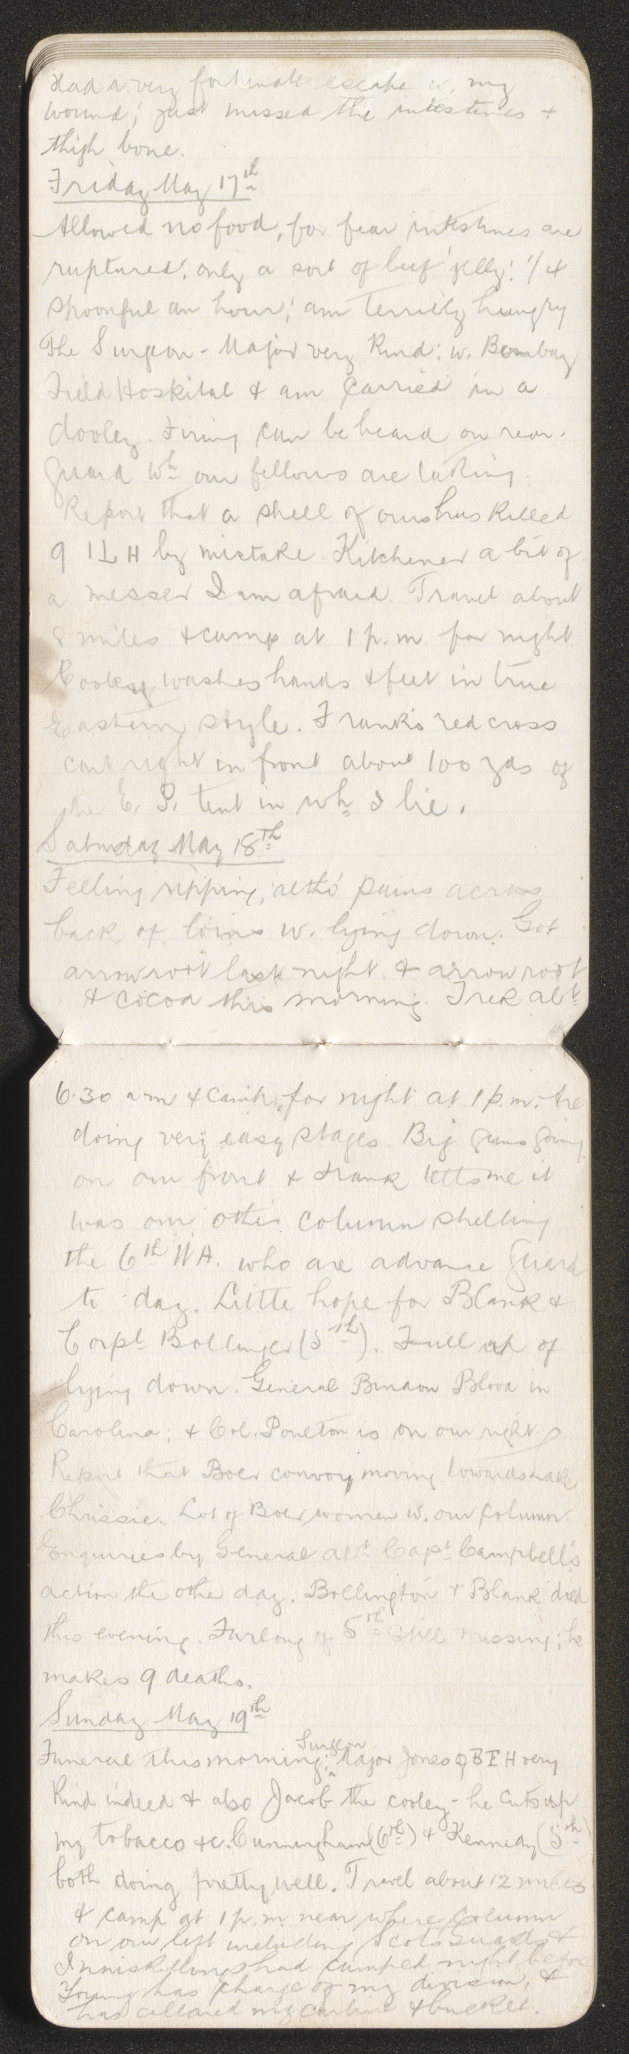 Had a very fortunate escape w. my
wound; just missed the intestines +
thigh bone.
Friday May 17th
Allowed no food, for fear intestines are
ruptured; only a sort of beef jelly: 1/4
spoonful an hour; am terribly hungry
The Surgeon-Major very kind: w. Bombay
Field Hospital & am carried in a
dooley. Firing can be heard on rear-
guard wh our fellows are taking.
Report that a shell of ours has killed
9 ILH by mistake. Kitchener a bit of
a messer I am afraid. Travel about
8 miles & camp at 1 p.m. for night
Cooley washes hands & feet in true
Eastern style. Frank's red cross
cart right in front about 100 yds of
the E. P. tent in wh I lie.
Saturday May 18th
Feeling ripping, altho' pains across
back of loins w. lying down. Got
arrowroot last night & arrowroot
& cocoa this morning. Trek abt
6.30 a m & camp for night at 1 p.m. Are
doing very easy stages. Big guns going
on our front & Frank tells me it
was our other column shelling
the 6th W A. who are advance guard
to day. Little hope for Blank &
Corpl Bollinger (5th). Full up of
lying down. General Bindon Blood in
Carolina; & Col. Poulton is on our right
Report that Boer convoy moving towards Lake
Chrissie. Lot of Boer women w. our column.
Enquiries by General abt Capt Campbell's
action the other day. Bollington & Blank died
this evening. Furlong of 5th still missing; he
makes 9 deaths.
Sunday May 19th
Funeral this morning; Surgeon Major Jones of B F H very
kind indeed & also Jacob the cooley - he cuts up
my tobacco &c. Cunningham (6th) & Kennedy (5th)
both doing pretty well. Travel about 12 miles
& camp at 1 p.m. near where column
on our left including Scots Guards &
Inniskillings had camped night before
Young has charge of my division, &
has collared my carbine & bucket.